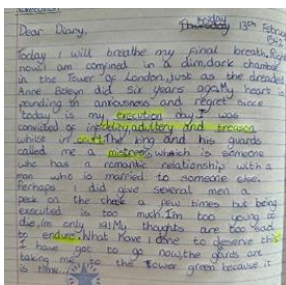 execution
Dear Diary, Thursday Friday 13th February
1542
Today I will breathe my final breath. Right
now I am confined in a dim, dark chamber
in the Tower of London, just as the dreaded
Anne Boleyn did six years ago. My heart is
pounding in anxiousness and regret since
today is my execution day. I was
convicted of infidelity, adultery and treason
whilst in court. The king and his guards
called me a mistress, which is someone
who has a romantic relationship with a
man who is married to someone else.
Perhaps I did give several men a
peck on the cheek a few times but being
executed is too much. I'm too young to
die, I'm only 19! My thoughts are too sad
to endure. What have I done to deserve this
I have got to go now, the gards are
taking me to the tower green because it
is time...